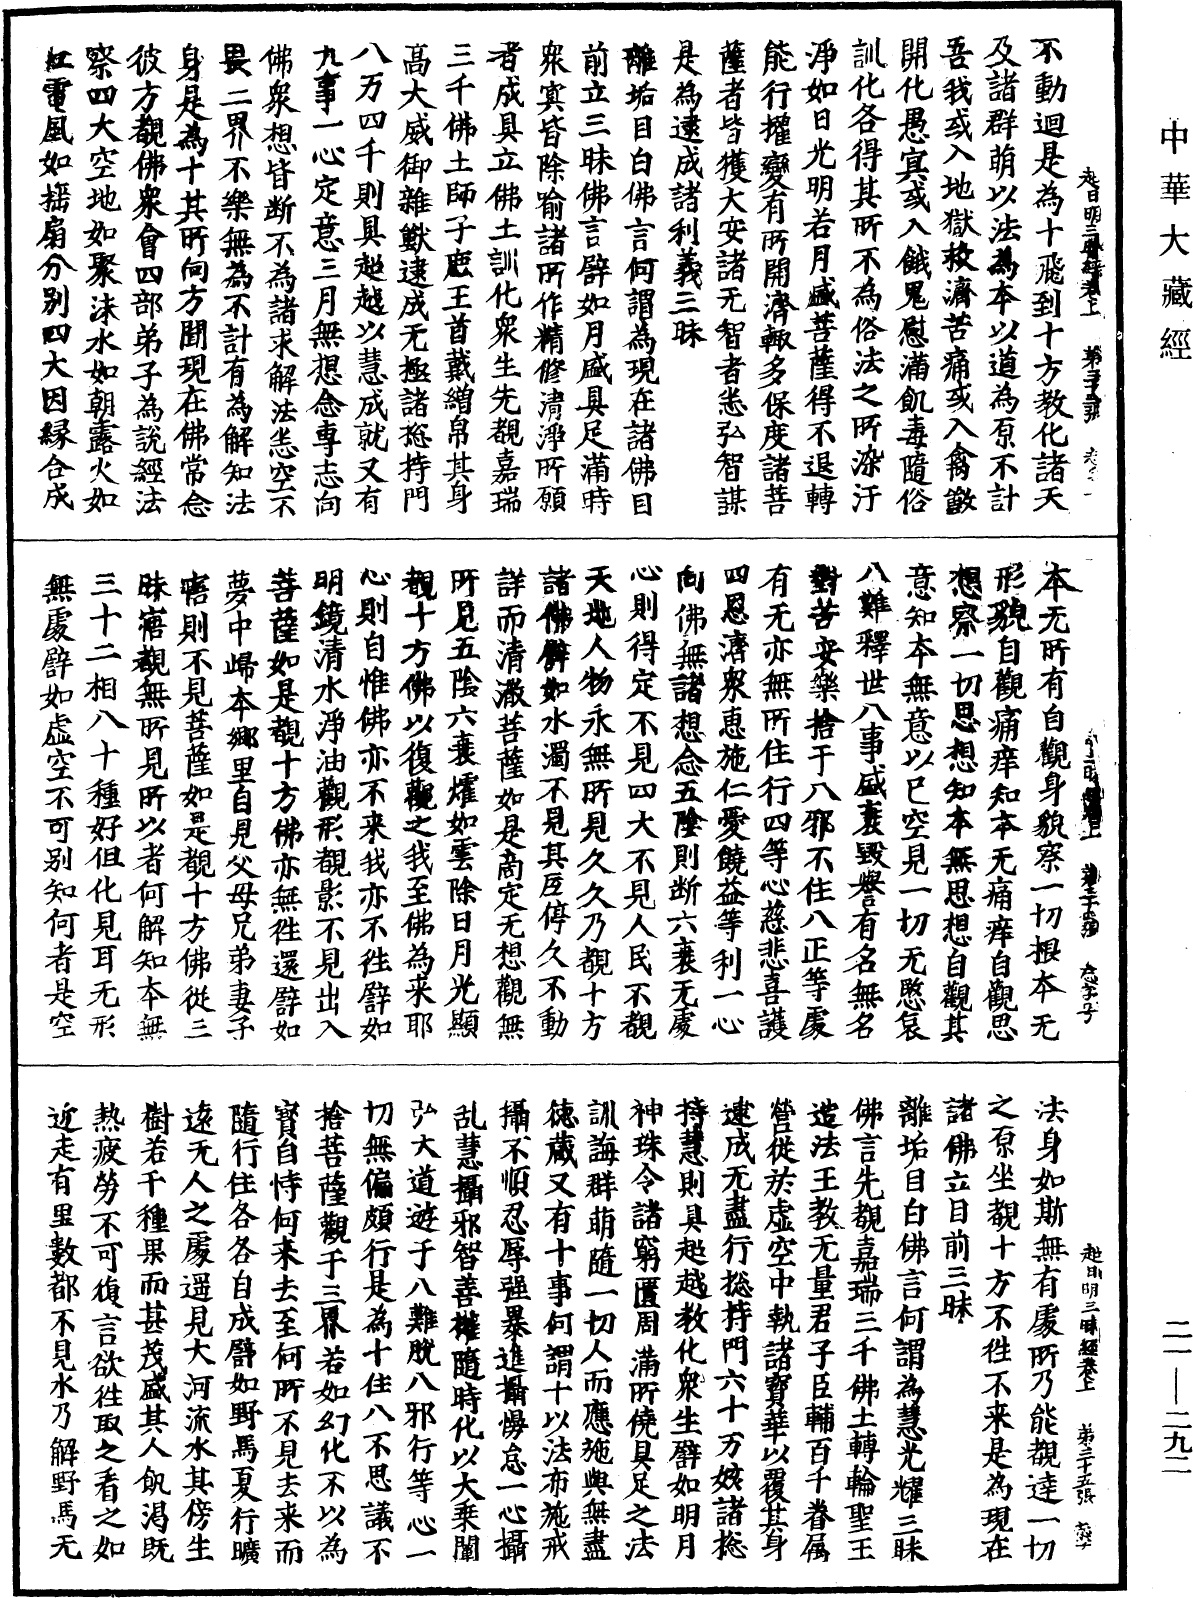 中華大藏經
二一——二九二
超日明三昧經卷上 第三十三張
不動迴是為十飛到十方教化諸天
及諸群萌以法為本以道為原不計
吾我或入地獄救濟苦痛或入禽獸
開化愚冥或入餓鬼慰滿飢毒隨俗
訓化各得其所不為俗法之所染汙
淨如日光明若月盛菩薩得不退轉
能行權變有所開濟輙多保度諸菩
薩者皆獲大安諸无智者悉弘智謀
是為逮成諸利義三昧
離垢目白佛言何謂為現在諸佛目
前立三昧佛言譬如月盛具足滿時
衆冥皆除喻諸所作精修清淨所願
者成具立佛土訓化衆生先覩嘉瑞
三千佛土師子鹿王首戴繒帛其身
高大威御雜獸逮成无極諸揔持門
八万四千則具超越以慧成就又有
九事一心定意三月無想念專志向
佛衆想皆断不為諸求解法恙空不
畏二界不樂無為不計有為解知法
身是為十其所向方聞現在佛常念
彼方覩佛衆會四部弟子為說經法
察四大空地如聚沫水如朝露火如
虹電風如揺扇分别四大因縁合成
第三十四張
本无所有自觀身貌察一切根本无
形貌自觀痛痒知本无痛痒自觀思
想察一切思想知本無思想自觀其
意知本無意以已空見一切无愍哀
八難釋世八事盛衰毀譽有名無名
對苦安樂捨于八邪不住八正等處
有无亦無所住行四等心慈悲喜護
四恩濟衆惠施仁愛饒益等利一心
向佛無諸想念五陰則断六衰无處
心則得定不見四大不見人民不覩
天地人物永無所見久久乃覩十方
諸佛譬如水濁不見其底停久不動
詳而清澈菩薩如是意定无想觀無
所見五陰六衰爗如雲除日月光顯
覩十方佛以復觀之我至佛為来耶
心則自惟佛亦不来我亦不徃譬如
明鏡清水淨油觀形覩影不見出入
菩薩如是覩十方佛亦無徃還譬如
夢中歸本鄉里自見父母兄弟妻子
寤則不見菩薩如是覩十方佛從三
昧寤覩無所見所以者何解知本無
三十二相八十種好但化見耳无形
無處譬如虛空不可别知何者是空
超日明三昧經卷上 第三十五張
法身如斯無有處所乃能覩達一切
之原坐覩十方不徃不来是為現在
諸佛立目前三昧
離垢目白佛言何謂為慧光耀三昧
佛言先覩嘉瑞三千佛土轉輪聖王
造法王教无量君子臣輔百千眷属
營從於虛空中執諸寶華以覆其身
逮成无盡行揔持門六十万姟諸揔
持慧則具超越教化衆生譬如明月
神珠令諸窮匱周滿所僥具足之法
訓誨群萌隨一切人而應施與無盡
德藏又有十事何謂十以法布施戒
攝不順忍辱强暴進攝慢怠一心攝
乱慧攝邪智善權隨時化以大乗闡
弘大道遊于八難脫八邪行等心一
切無偏頗行是為十住八不思議不
捨菩薩觀于三界若如幻化不以為
寳自恃何来去至何所不見去来而
隨行住各各自成譬如野馬夏行曠
逺无人之處遥見大河流水其傍生
樹若千種果而甚茂盛其人飢渴既
熱疲勞不可復言欲徃取之看之如
近走有里數都不見水乃解野馬无